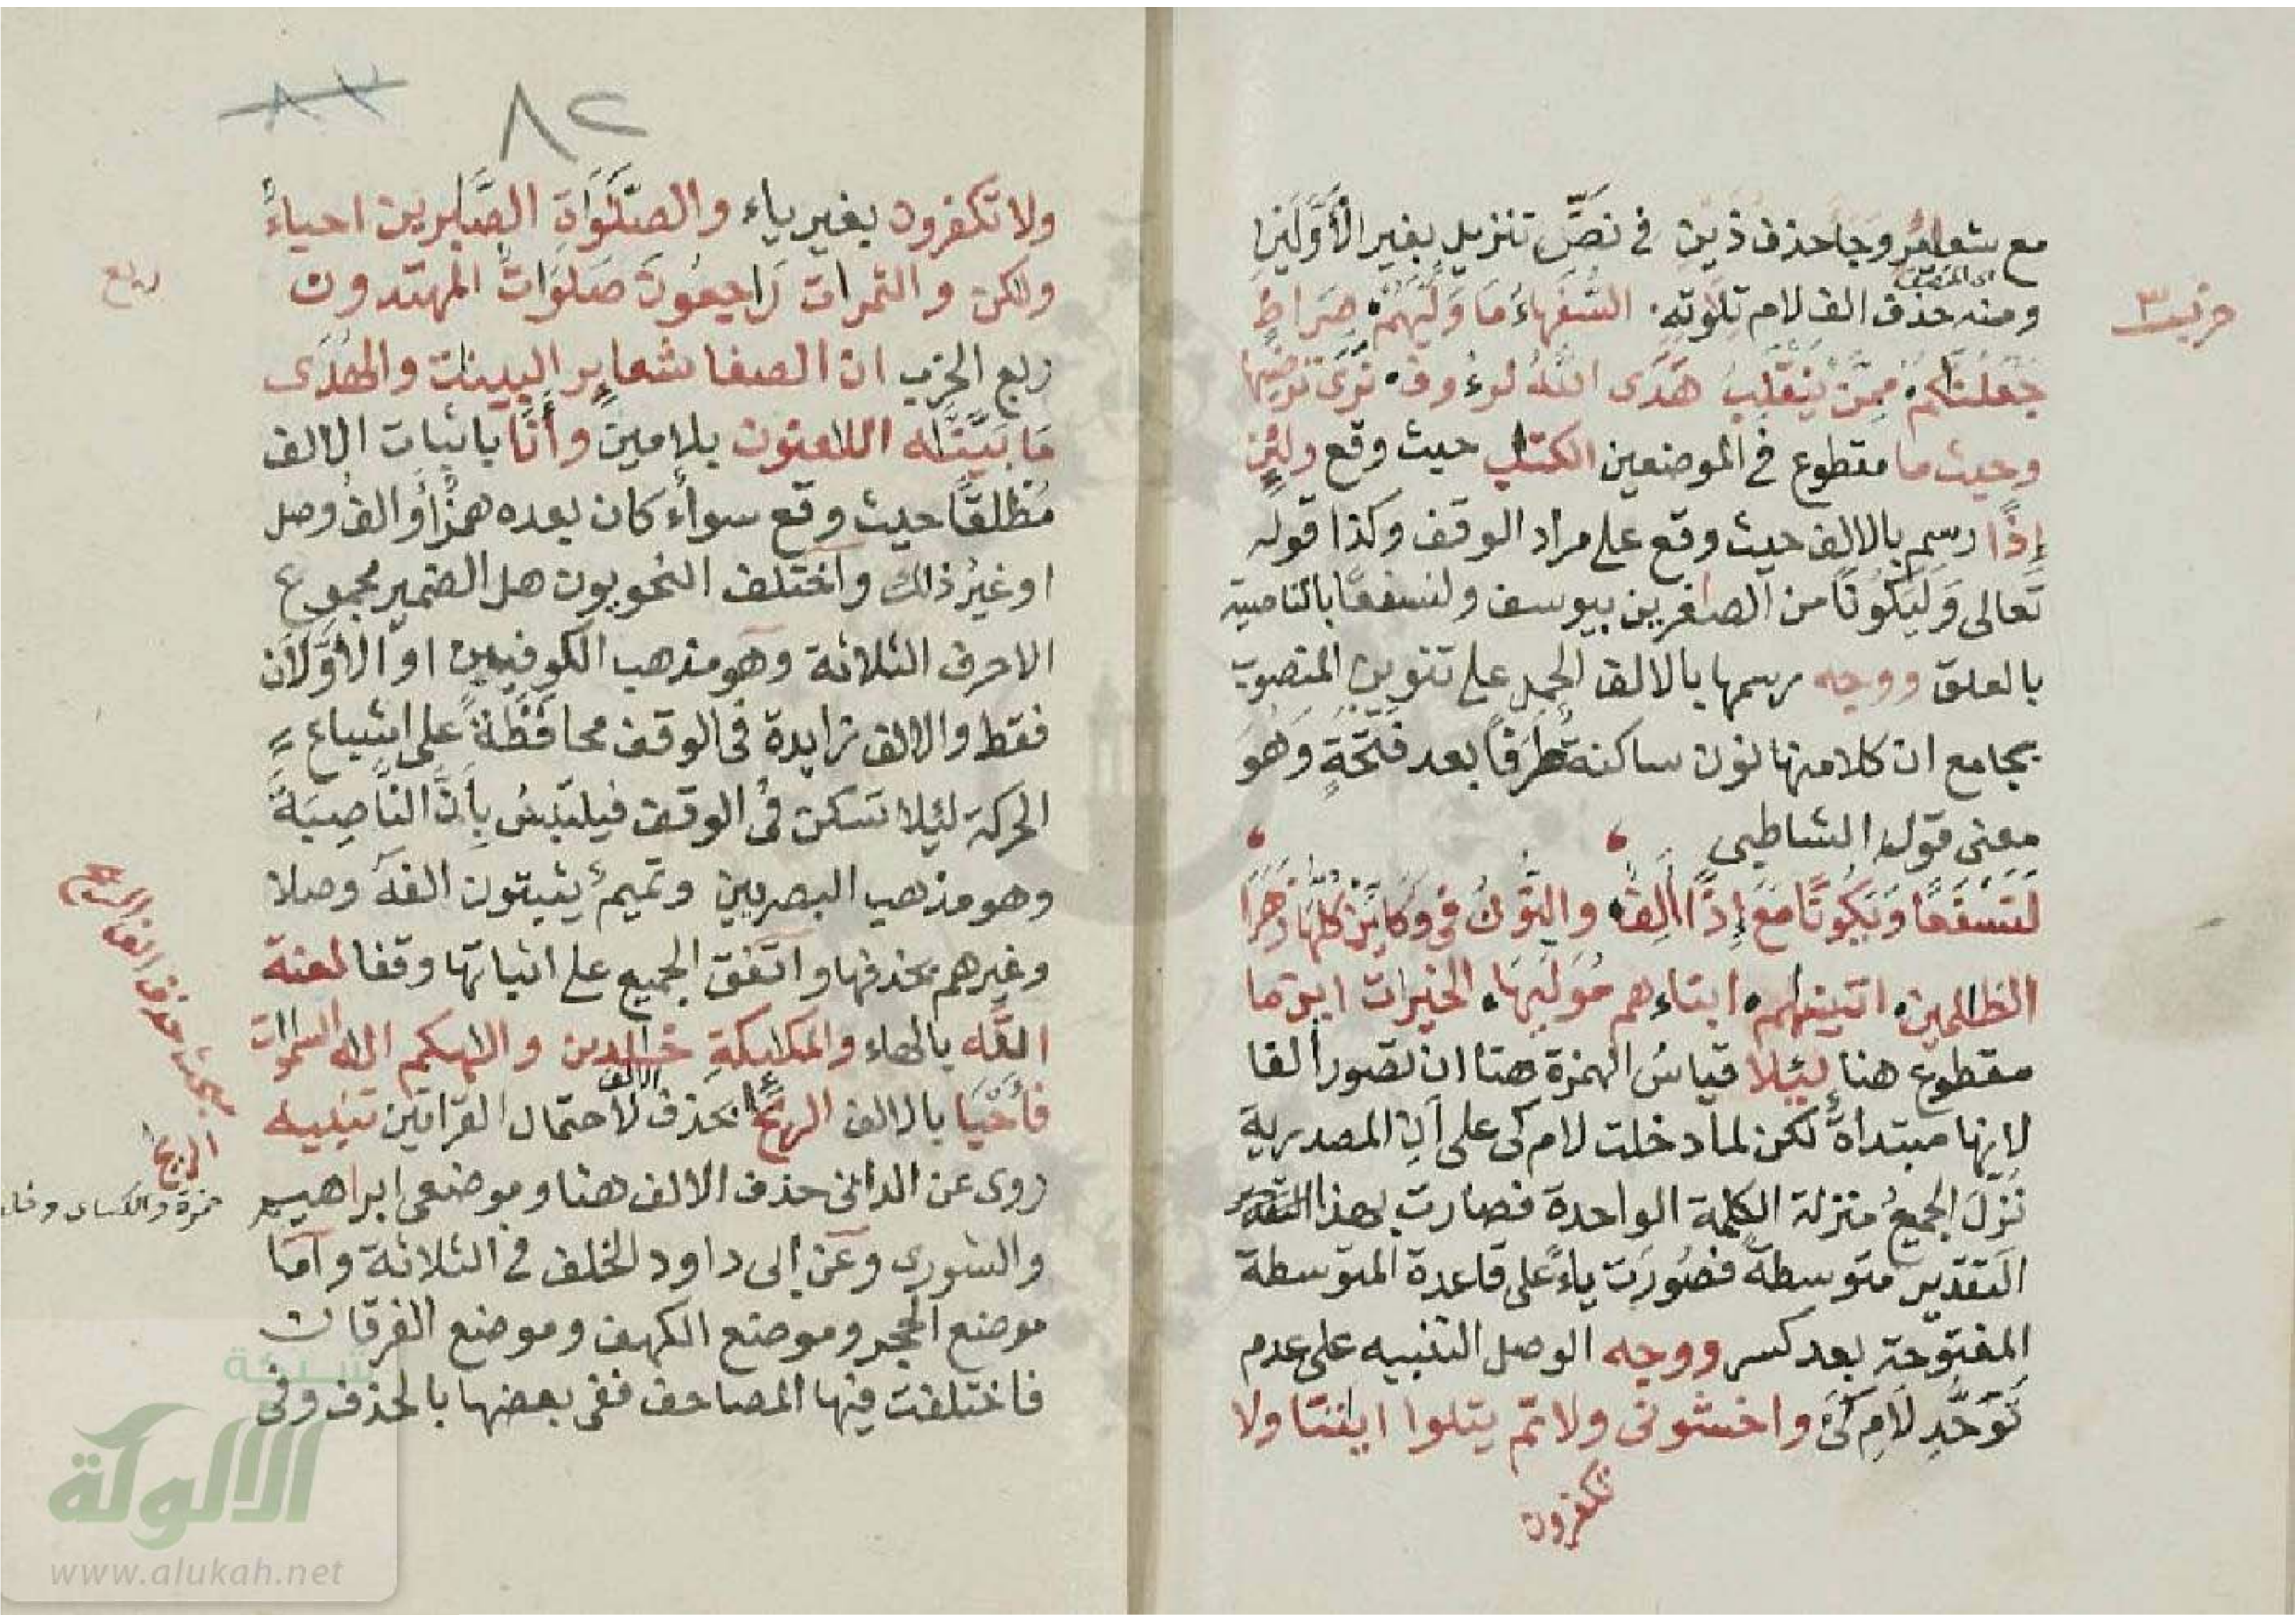 مع شعائر وجا حذف ذين في نصّ تنزيل بغير الأوّلين
ومنه حذف الف لام تلوته السُّفَهَاءُ مَا وَلَّيٰهُمْ صِرَاطٍ
جَعَلْنَاكُمْ مِمَّنْ يَنْقَلِبُ هَدَى اللهُ لرءُوف نَرَى تَرْضٰيهَا
وحيث ما مقطوع في الموضعين الكتٰب حيث وقع ولئن
إذًا رسم بالالف حيث وقع على مراد الوقف وكذا قوله
تعالى وَلَيَكُونًا من الصاغرين بيوسف ولنسفعًا بالناصية
بالعلق ووجه رسمها بالالف الحمل على تنوين المنصوب
بجامع ان كلا منها نون ساكنة طَرَفًا بعد فَتْحَةٍ وَهُوَ
معنى قول الشاطبي
لَنَسْفَعًا وَيَكُونًا مَعَ إِذًا أَلِفٌ والنُّونُ في وَكَأَيِّنْ كُلِّهَا زَهَرَا
الظالمين اتينٰهم ابناءهم مُوَلِّيهَا الخيرات اين ما
مقطوع هنا لِئلا قياسُ الهمزة هنا ان تصور ألفا
لانها مبتدأة لكن لما دخلت لام كى على أن المصدرية
نُزّلَ الجميعُ منزلة الكلمة الواحدة فصارت بهذا
التقدير متوسطة فصُوّرَت ياءً على قاعدة المتوسطة
المفتوحة بعد كسر ووجه الوصل التنبيه على عدم
تَوَحُّدِ لَامِ كَىْ واخشونى ولاتم يتلوا ايٰتنا ولا
تكفرون
حزب ٣
٨٢
ولا تكفرون بغير ياء والصَّلَوٰةِ الصَّابرين احياءٌ
ولٰكن والثمرات رَاجِعُونَ صَلَوَاتٌ المهتدون
ربع الحزب ان الصفا شعاير البينٰت والهُدَى
مَا بَيَّنّٰه اللاعنون بلامين وأَنَا باثبات الالف
مُطْلَقًا حيث وقع سواءً كان بعده همزٌ أو الفُ وصل
او غيرُ ذالك واختلف النحويون هل الضمير مجموع
الاحرف الثلاثة وهو مذهب الكوفيين او الأوّلان
فقط والالف زايدة في الوقف محافَظَةً على اشباع
الحركة ليئلا تسكن في الوقف فيلتبسُ بِأَنْ النّاصِبَة
وهو مذهب البصريين وتميمٌ يثبتون الفه وصلا
وغيرهم بحذفها واتفق الجميع على اثباتها وقفا لعنة
اللّه بالهاء والملٰيكةِ خٰلدين والٰهكم الٰه السمٰوٰت
فأَحْيَا بالالف الريٰح بحذف الالف لاحتمال القرائتين تنبيه
روى عن الدانى حذف الالف هنا وموضعى ابراهيم
والشورى وعن ابى داود الخلف في الثلاثة وأمّا
موضع الحجر وموضع الكهف وموضع الفرقان
فاختلفت فيها المصاحف ففى بعضها بالحذف وفى
ربع
مبحث حذف الف
الريٰح
حمزة والكساى وخلف
شبكة
الألوكة
www.alukah.net